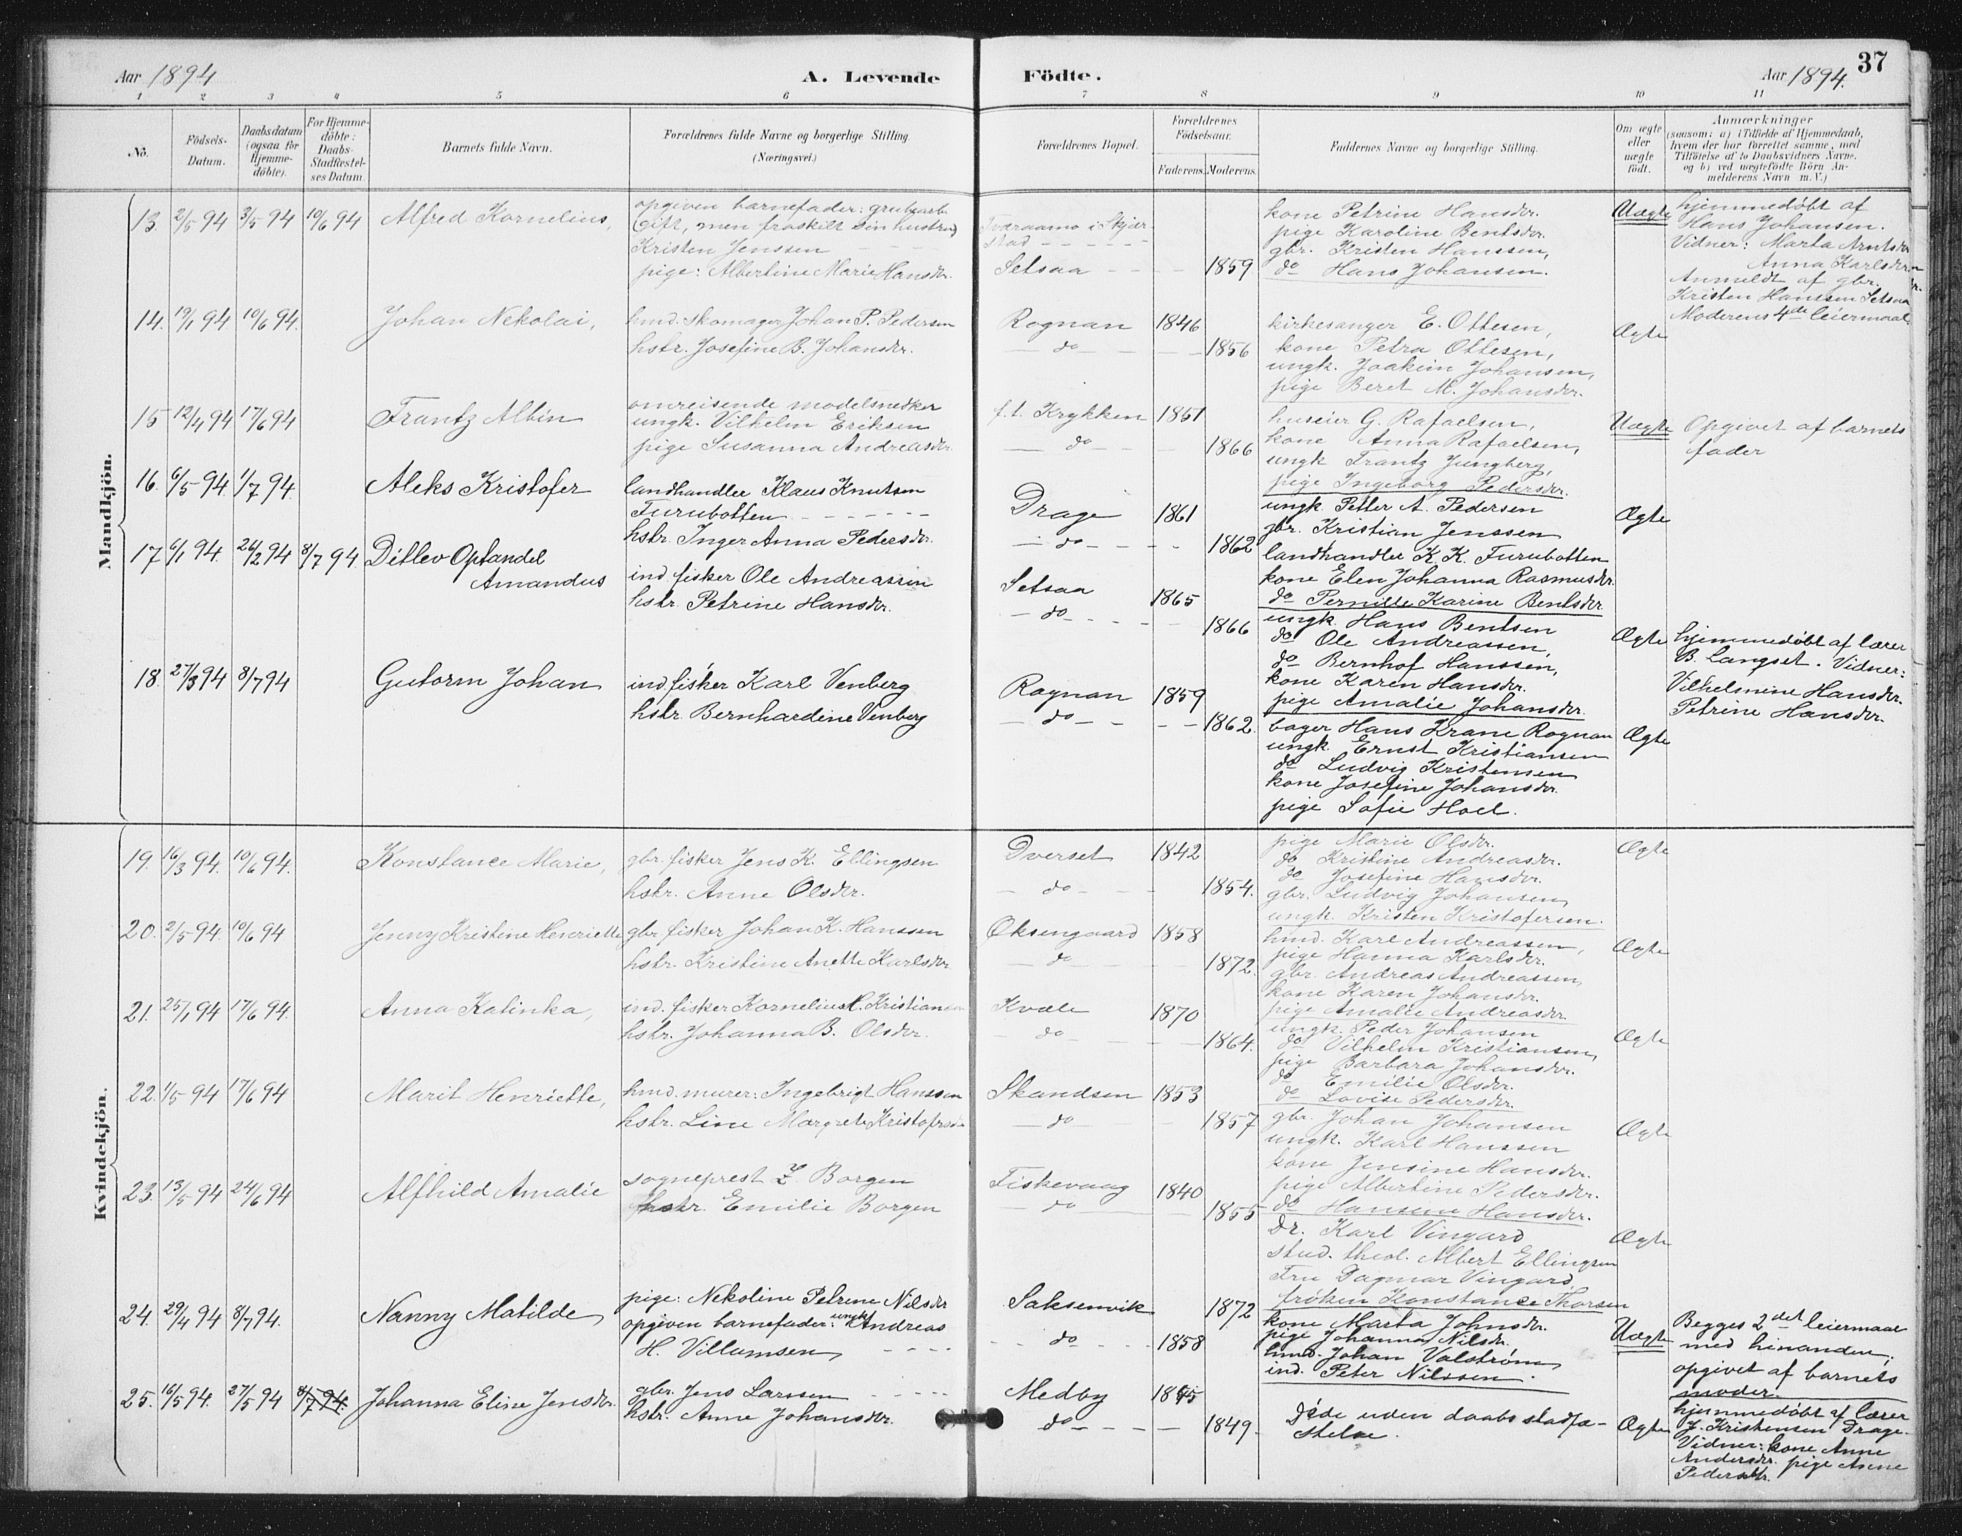 Aar 1894
A. Levende
Födte.
Aar 1894.
37
1 2 3 4 5 6 7 8 9 10 11
No.
Födsels-
Datum.
Daabsdatum
(ogsaa for
Hjemme-
döbte).
For Hjemme-
döbte:
Daabs-
Stadfæstel-
ses Datum.
Barnets fulde Navn.
Forældrenes fulde Navne og borgerlige Stilling
(Næringsvei.)
Forældrenes Bopæl.
Forældrenes
Födselsaar.
Faderens. Moderens.
Faddernes Navne og borgerlige Stilling.
Om ægte
eller
uægte
födt.
Anmærkninger
(saasom: a) i Tilfælde af Hjemmedaab,
hvem der har forrettet samme, med
Tilföielse af to Daabsvidners Navne.
og b) ved uægtefödte Börn An-
melderens Navn m. V.)
Mandkjön.
13. 2/5 94 3/5 94 10/6 94 Alfred Kornelius,
opgiven barnefader: grubearb.
(Gift, men fraskilt sin hustru)
Kristen Jenssen
pige: Albertine Marie Hansdr.
Tveraamo i Skjær-
stad
Setsaa 1859
kone Petrine Hansdr.
pige Karoline Bentsdr.
gbr. Kristen Hanssen,
do Hans Johansen.
Uægte
hjemmedøbt af
Hans Johansen.
Vidner: Marta Arntsdr
Anna Karlsdr.
Anmeldt af gbr.
Kristen Hanssen Setsaa
Moderens 4de leiermaal.
14. 19/1 94 10/6 94. Johan Nekolai,
hmd. Skomager Johan P. Pedersen
hstr. Josefine B. Johansdr.
Rognan 1846
do 1856
kirkesanger E. Ottesen,
kone Petra Ottesen,
ungk. Joakim Johansen,
pige Beret M. Johansdr.
Ægte
15 12/4 94 17/6 94 Frantz Albin
omreisende modelsnedker
ungk. Vilhelm Eriksen
pige Susanna Andreasdr.
f.t. Krykken 1851
do 1866
huseier G. Rafaelsen,
kone Anna Rafaelsen,
ungk Frantz Jungberg,
pige Ingeborg Pedersdr.
Uægte
Opgivet af barnets
fader
16. 6/5 94. 1/7 94. Aleks Kristofer
landhandler Klaus Knutsen
Furubotten
hstr. Inger Anna Pedersdr.
Drage 1861
do 1862
ungk Petter A. Pedersen
gbr. Kristian Jenssen
landhandler K. K. Furubotten
kone Elen Johanna Rasmusdr.
do Pernille Karine Bentsdr.
Ægte
17 6/1 94. 26/2 94 8/7 94 Ditlev Optandel
Amandus
ind. fisker Ole Andreassen
hstr. Petrine Hansdr.
Setsaa 1865
do 1866
ungk. Hans Bentsen
do Ole Andreassen,
do Bernhof Hanssen,
kone Karen Hansdr.
pige Amalie Johansdr.
Ægte
hjemmedøbt af lærer
B. Langset. Vidner:
Vilhelmine Hansdr.
Petrine Hansdr.
18. 27/3 94 8/7 94 Gutorm Johan
ind fisker Karl Venberg
hstr. Bernhardine Venberg
Rognan 1859
do 1862.
bager Hans Krane Rognan
ungk. Ernst Kristiansen
do Ludvig Kristensen
kone Josefine Johansdr.
pige Sofie Hoel.
Ægte
Kvindekjön.
19. 16/3 94. 10/6 94. Konstance Marie,
gbr. fisker Jens K. Ellingsen
hstr. Anne Olsdr.
Dverset 1842
do 1854.
pige Marie Olsdr.
do Kristine Andreasdr.
do Josefine Hansdr.
gbr. Ludvig Johansen,
ungk. Kristen Kristofersen.
Ægte
20. 2/5 94. 10/6 94 Jenny Kristine Henriette
gbr. fisker Johan K. Hanssen
hstr. Kristine Anette Karlsdr
Oksengaard 1858
do 1872.
hmd. Karl Andreassen,
pige Hanna Karlsdr.
gbr. Andreas Andreassen,
kone Karen Johansdr.
pige Amalie Andreasdr.
Ægte
21. 25/1 94 17/6 94. Anna Katinka,
ind. fisker Kornelius H. Kristiansen
hstr. Johanna B. Olsdr.
Kvæle 1870
do 1864.
ungk. Peder Johansen
do Vilhelm Kristiansen,
pige Barbara Johansdr.
do Emilie Olsdr.
do Lovise Pedersdr.
Ægte
22. 1/5 94 17/6 94 Marit Henriette,
hmd. murer: Ingebrigt Hanssen
hstr. Line Margrete Kristofersdr
Skandsen 1853
do 1857
gbr. Johan Johansen
ungk. Karl Hanssen
kone Jensine Hansdr.
pige Albertine Pedersdr.
do Hansine Hansdr.
Ægte
23. 13/5 94 24/6 94 Alfhild Amalie
sogneprest Z Borgen
hstr. Emilie Borgen
Fiskevaag 1840
do 1855
Dr. Karl Vingard
stud. theol. Albert Ellingsen
Fru Dagmar Vingard
frøken Konstance Thorsen
Ægte
24. 29/4 94 8/7 94. Nanny Matilde
pige: Nekoline Petrine Nilsdr
opgiven barnefader: ungk Andreas
H. Villumsen,
Saksenvik 1872
do 1858
kone Marta Johnsdr.
pige Johanna Nilsdr.
hmd. Johan Valstrøm,
ind. Peter Nilssen.
Uægte
Begges 2det leiermaal
med hinanden,
opgivet af barnets
moder.
25. 16/5 94. 27/5 94 8/7 94. Johanna Eline Jensdr.
gbr. Jens Larssen
hstr. Anne Johansdr.
Medby 1845
do 1849.
Døde uden daabs stadfæ-
stelse.
Ægte
hjemmedøbt af lærer
J. Kristensen Drage.
Vidner: kone Anne
Andersdr. pige Anne
Pedersdtr.